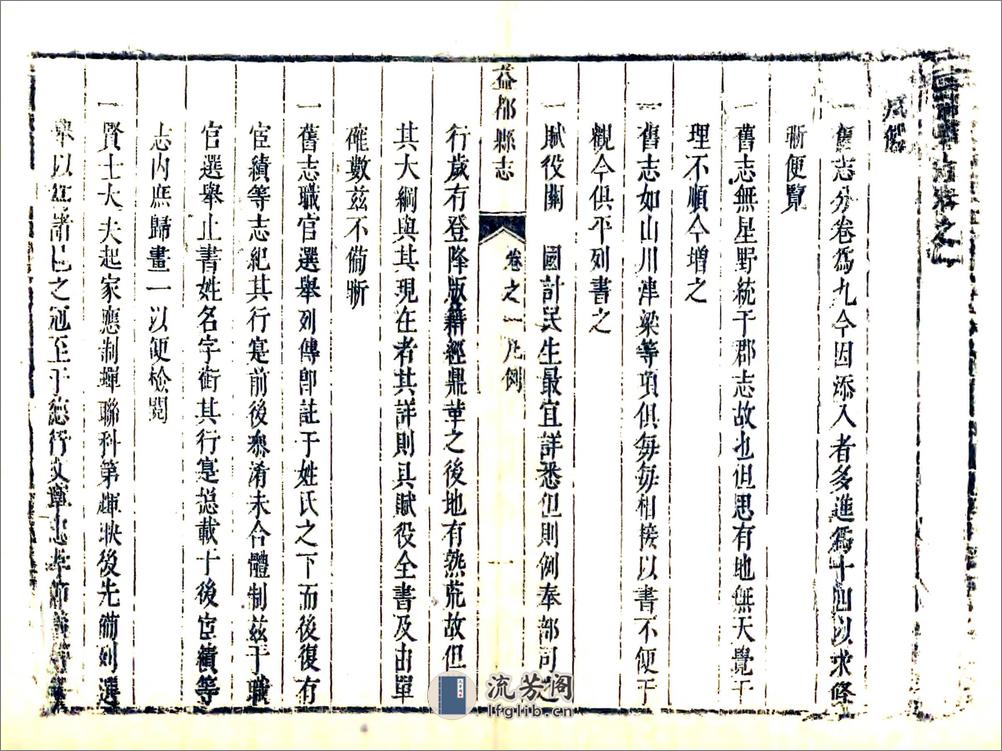 縣志卷之一
凡例
一舊志分卷爲九今因添入者多進爲十四以求條
晰便覽
一舊志無星野統于郡志故也但思有地無天覺于
理不順今增之
一舊志如山川津梁等項俱每每相接以書不便于
觀今俱平列書之
一賦役關 國計民生最宜詳悉但則例奉部司
益都縣志 卷之一 凡例
行歲有登降版籍經鼎革之後地有熟荒故但
其大綱與其現在者其詳則具賦役全書及由單
確數茲不備晰
一舊志職官選舉列傳卽註于姓氏之下而後復有
宦績等志紀其行寔前後叅淆未合體制茲于職
官選舉止書姓名字銜其行寔總載于後宦績等
志内庶歸畫一以便檢閱
一賢士大夫起家應制蟬聯科第輝映後先備列選
舉以冠諸邑之冠至于德行文章忠孝節義等
流芳阁
lfglib.cn